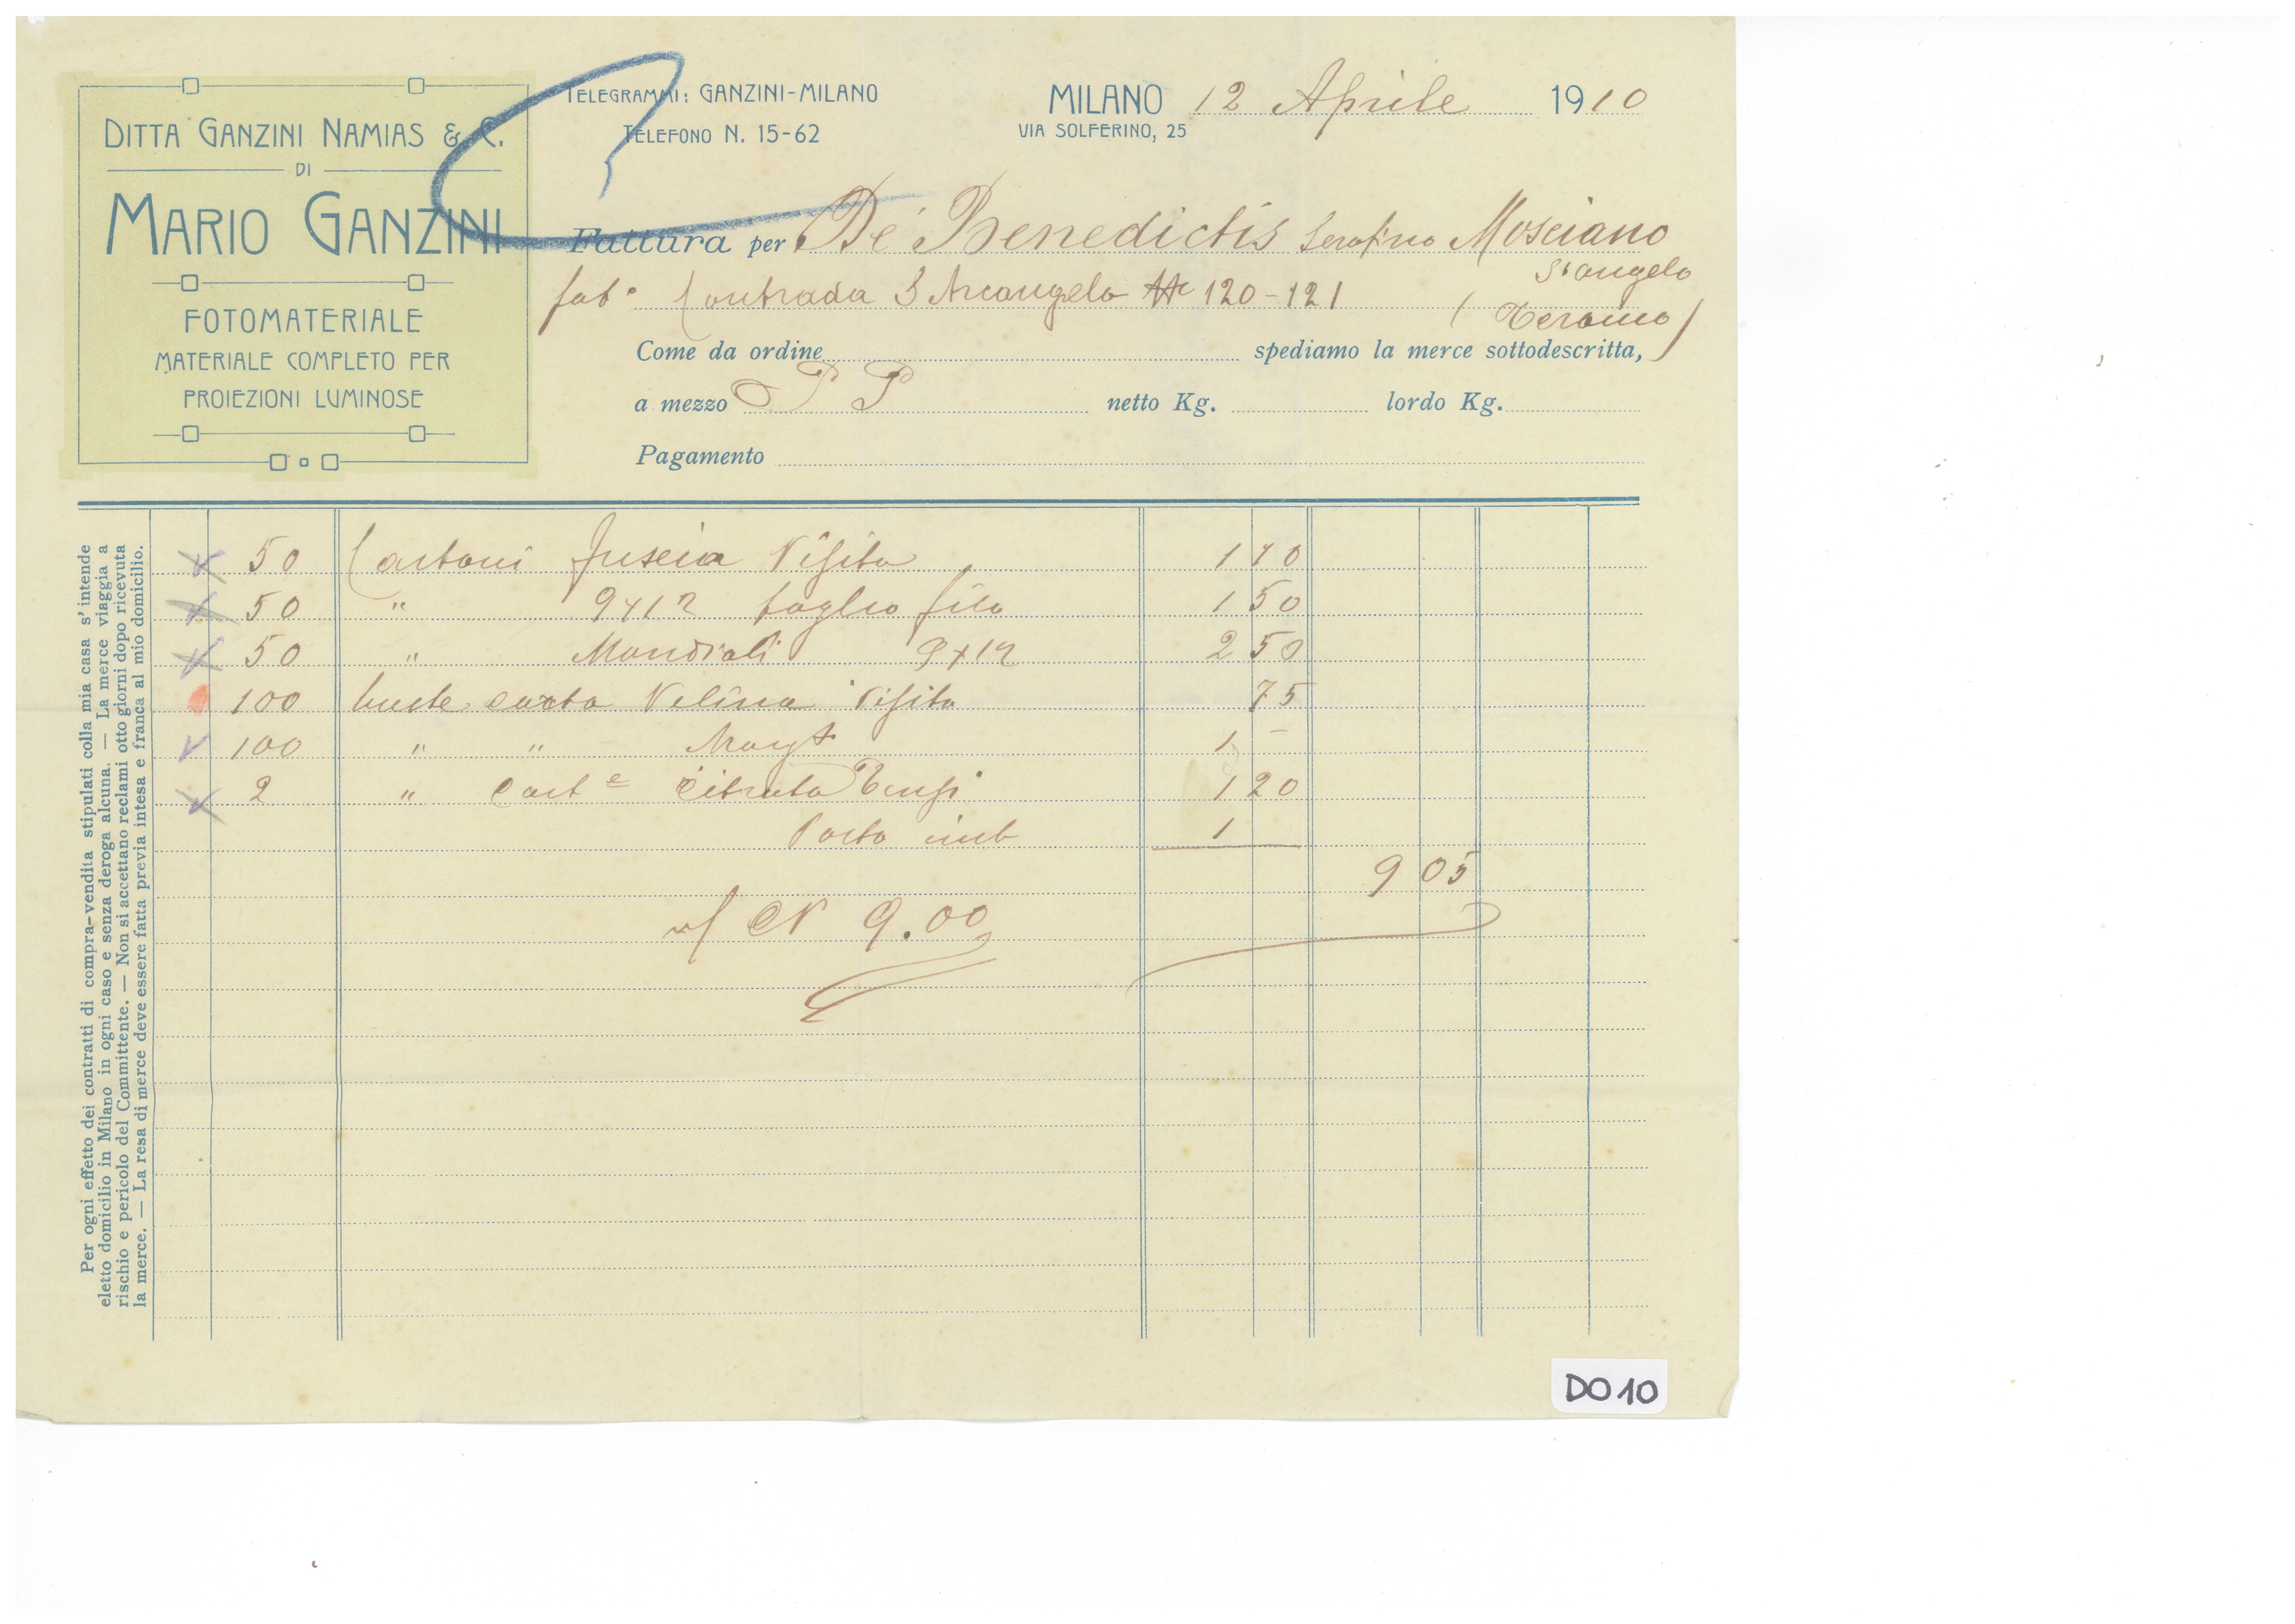 DITTA GANZINI NAMIAS & C.
DI
MARIO GANZINI
FOTOMATERIALE
MATERIALE COMPLETO PER
PROIEZIONI LUMINOSE
TELEGRAMMI: GANZINI-MILANO
TELEFONO N. 15-62
MILANO 12 Aprile 1910
VIA SOLFERINO, 25
Fattura per De Benedictis Serafino Mosciano
S. Angelo
fab° Contrada S Arcangelo 120-121 (Teramo)
Come da ordine spediamo la merce sottodescritta,
a mezzo P P netto Kg. lordo Kg.
Pagamento
50 Cartoni fuseia Visita 1 10
50 " 9x12 taglio filo 1 50
50 " Mondiali 9x12 2 50
100 buste carta Velina Visita 75
100 " " Margt 1 -
2 " Cart e Citrato Tensi 1 20
Porto imb 1
9 05
9.00
Per ogni effetto dei contratti di compra-vendita stipulati colla mia casa s'intende
eletto domicilio in Milano in ogni caso e senza deroga alcuna. — La merce viaggia a
rischio e pericolo del Committente. — Non si accettano reclami otto giorni dopo ricevuta
la merce. — La resa di merce deve essere fatta previa intesa e franca al mio domicilio.
DO10